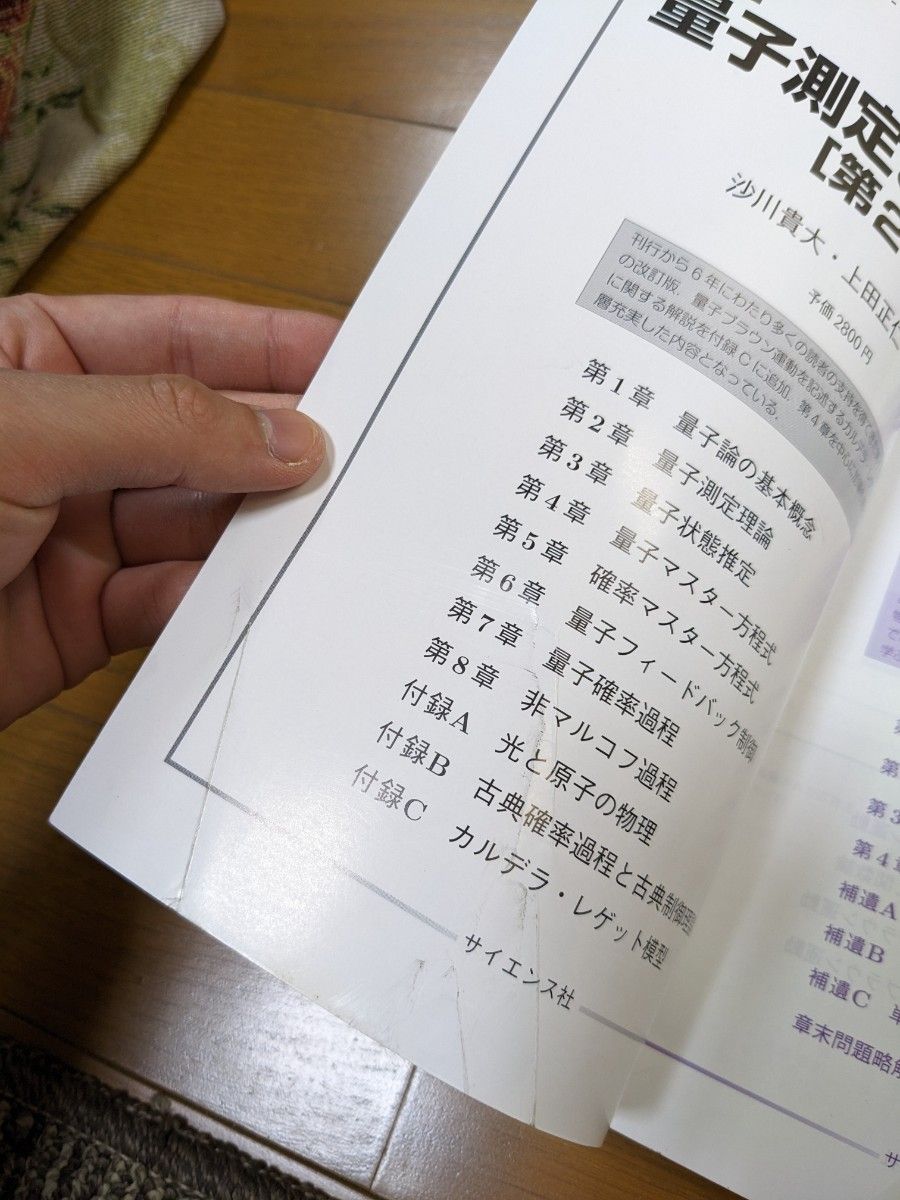 量子測定
[第2
沙川貴大・上田正仁
予価 2800 円
刊行から6年にわたり多くの読者の支持を得
の改訂版. 量子ブラウン運動を記述するカルデラ
に関する解説を付録 C に追加. 第4章を中心に
層充実した内容となっている.
第1章 量子論の基本概念
第2章 量子測定理論
第3章 量子状態推定
第4章 量子マスター方程式
第5章 確率マスター方程式
第6章 量子フィードバック制御
第7章 量子確率過程
第8章 非マルコフ過程
付録A 光と原子の物理
付録B 古典確率過程と古典制御理論
付録C カルデラ・レゲット模型
サイエンス社
第
第3
第4章
補遺A
補遺B
補遺C
章末問題略解
サ